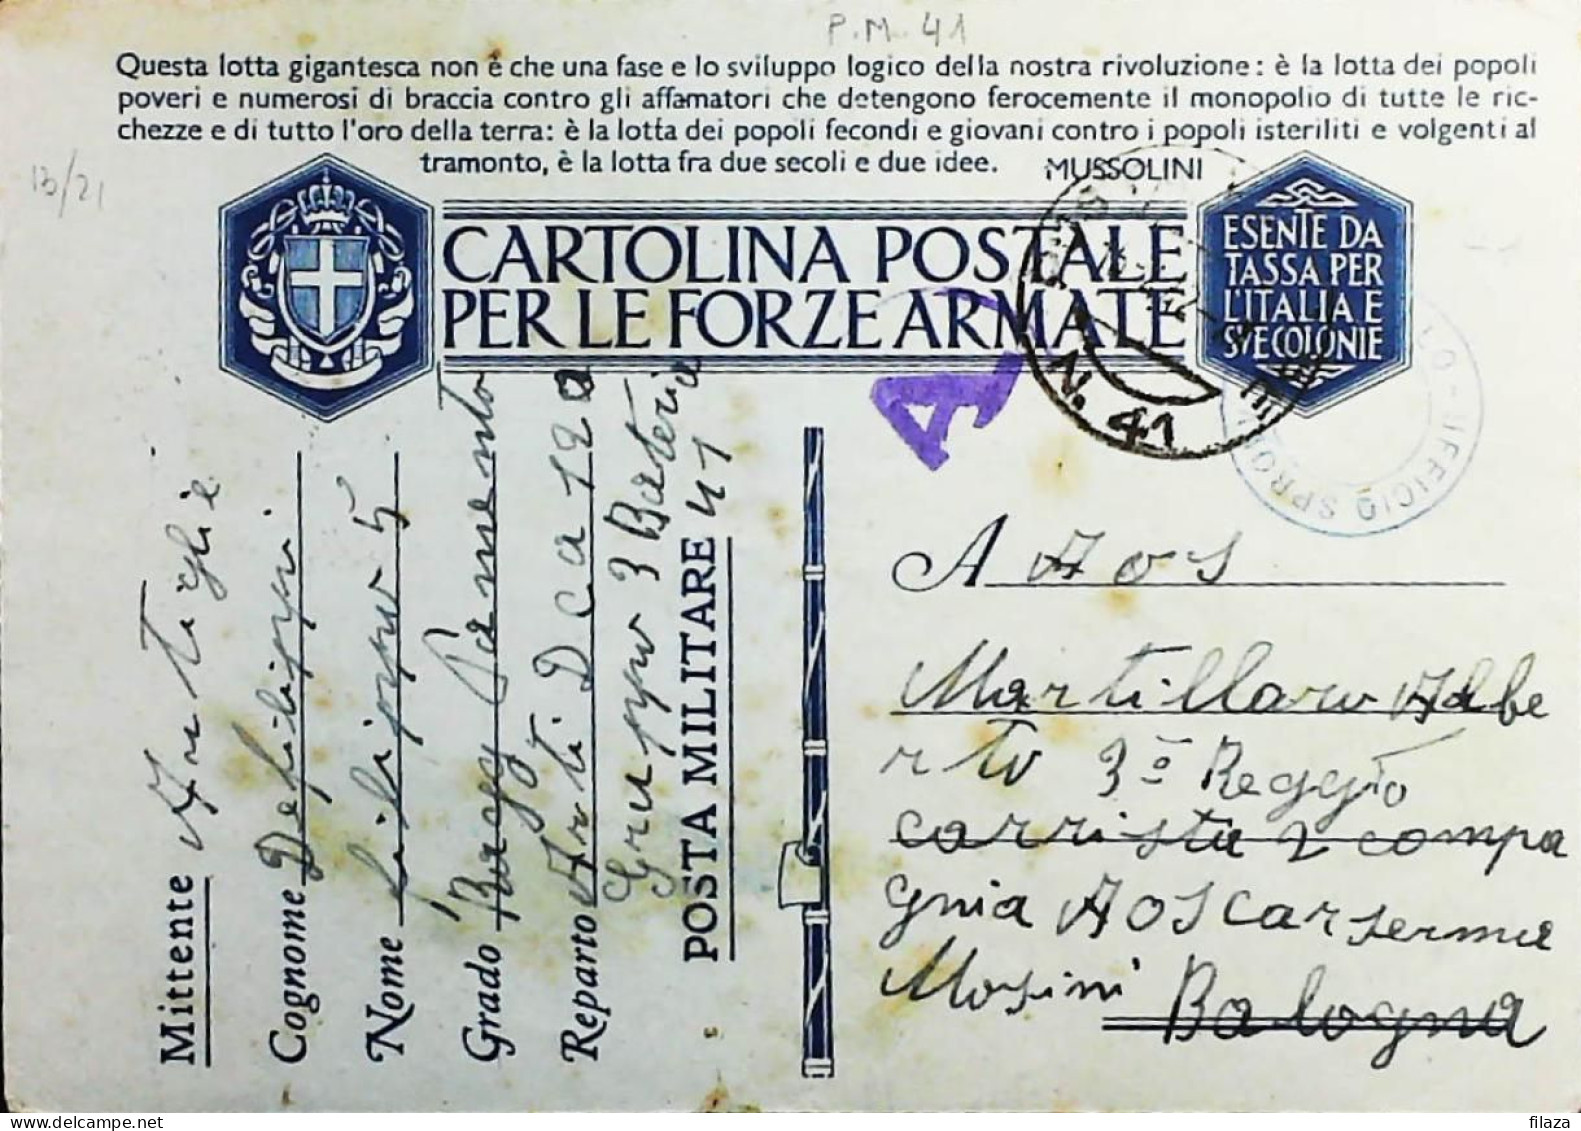 P.M. 41
Questa lotta gigantesca non è che una fase e lo sviluppo logico della nostra rivoluzione: è la lotta dei popoli
poveri e numerosi di braccia contro gli affamatori che detengono ferocemente il monopolio di tutte le ric-
chezze e di tutto l'oro della terra: è la lotta dei popoli fecondi e giovani contro i popoli isteriliti e volgenti al
tramonto, è la lotta fra due secoli e due idee. MUSSOLINI
13/21
CARTOLINA POSTALE
PER LE FORZE ARMATE
ESENTE DA
TASSA PER
L'ITALIA E
SVE COLONIE
N. 41
UFFICIO
Mittente Artiglie
Cognome Defilippi
Nome Filippo 5
Grado Ragg
Reparto Arti D c a 12
Gruppo 3 Bateria
POSTA MILITARE 41
A Aos
Martillaro Albe
rto 3º Reggto
carrista 2 compa
gnia Aos carserma
Mosini Bologna
filaza